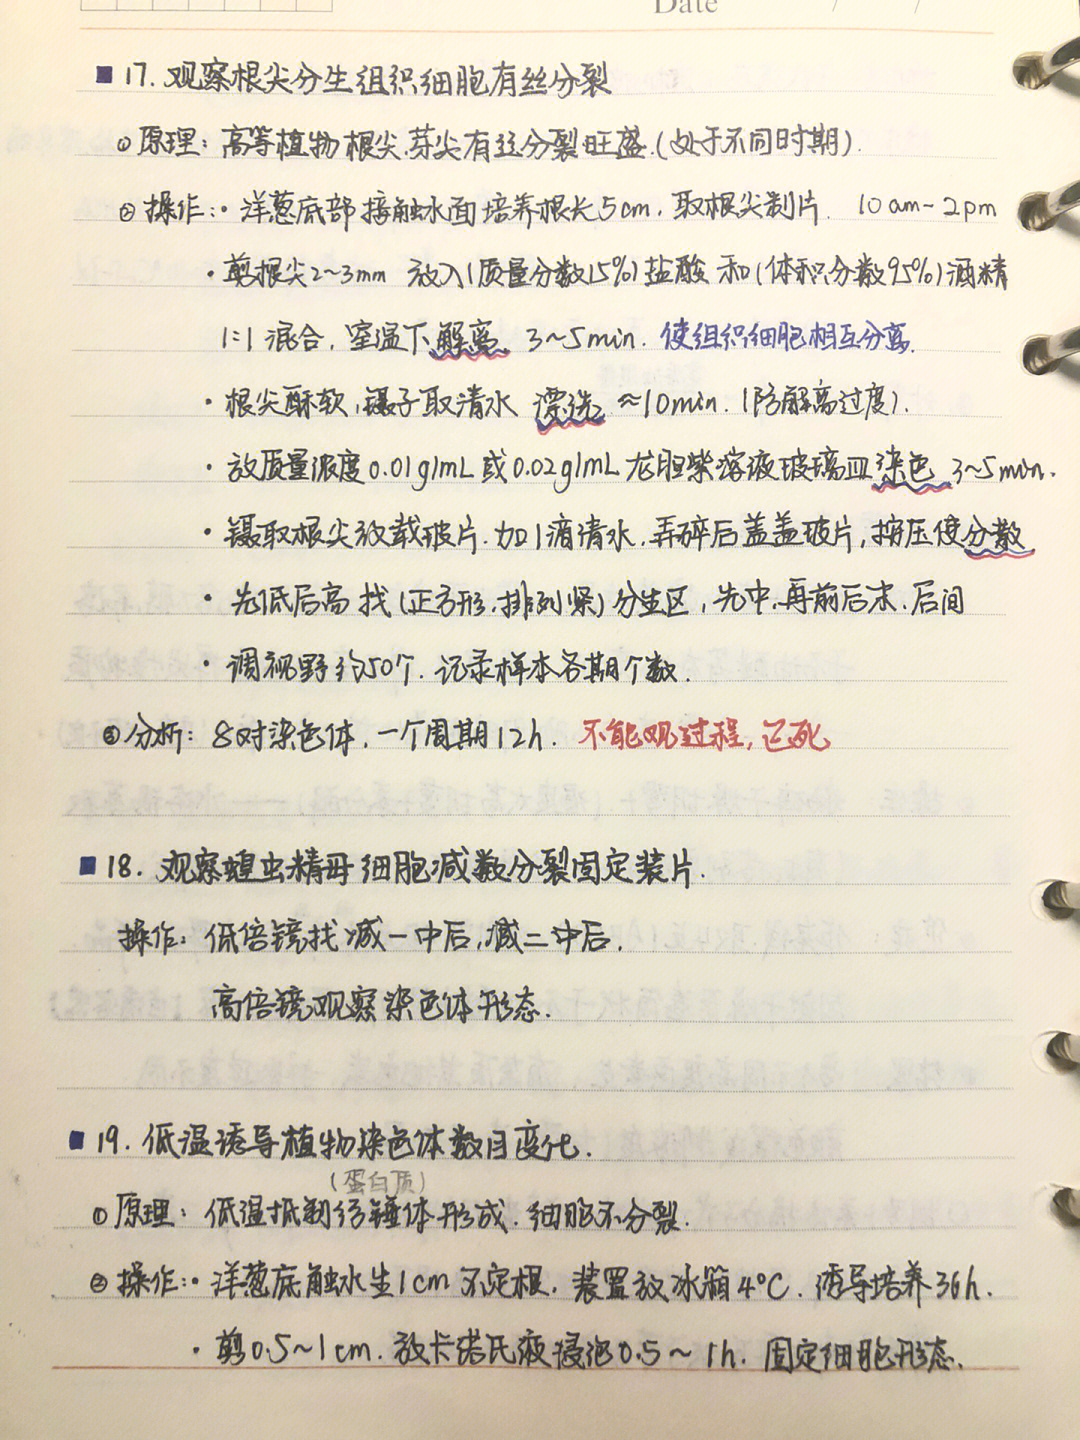 Date / /
17. 观察根尖分生组织细胞有丝分裂
① 原理: 高等植物根尖.芽尖有丝分裂旺盛.(处于不同时期).
② 操作:· 洋葱底部接触水面培养根长5cm. 取根尖制片. 10am~2pm
· 剪根尖2~3mm 放入(质量分数15%)盐酸和(体积分数95%)酒精
1:1混合, 室温下解离 3~5min. 使组织细胞相互分离.
· 根尖酥软,镊子取清水 漂洗 ≈10min. (防解离过度).
· 放质量浓度0.01g/mL或0.02g/mL龙胆紫溶液玻璃皿染色 3~5min.
· 镊取根尖放载玻片.加1滴清水.弄碎后盖盖玻片,按压使分散
· 先低后高找(正方形,排列紧)分生区,先中.再前后末.后间
· 调视野约50个. 记录样本各期个数.
③ 分析: 8对染色体,一个周期12h. 不能观过程,已死
18. 观察蝗虫精母细胞减数分裂固定装片.
操作: 低倍镜找减一中后,减二中后.
高倍镜观察染色体形态.
19. 低温诱导植物染色体数目变化.
(蛋白质)
① 原理: 低温抵制纺锤体形成.细胞不分裂.
② 操作:· 洋葱底触水生1cm不定根, 装置放冰箱4°C. 诱导培养36h.
· 剪0.5~1cm. 放卡诺氏液浸泡0.5~1h. 固定细胞形态.